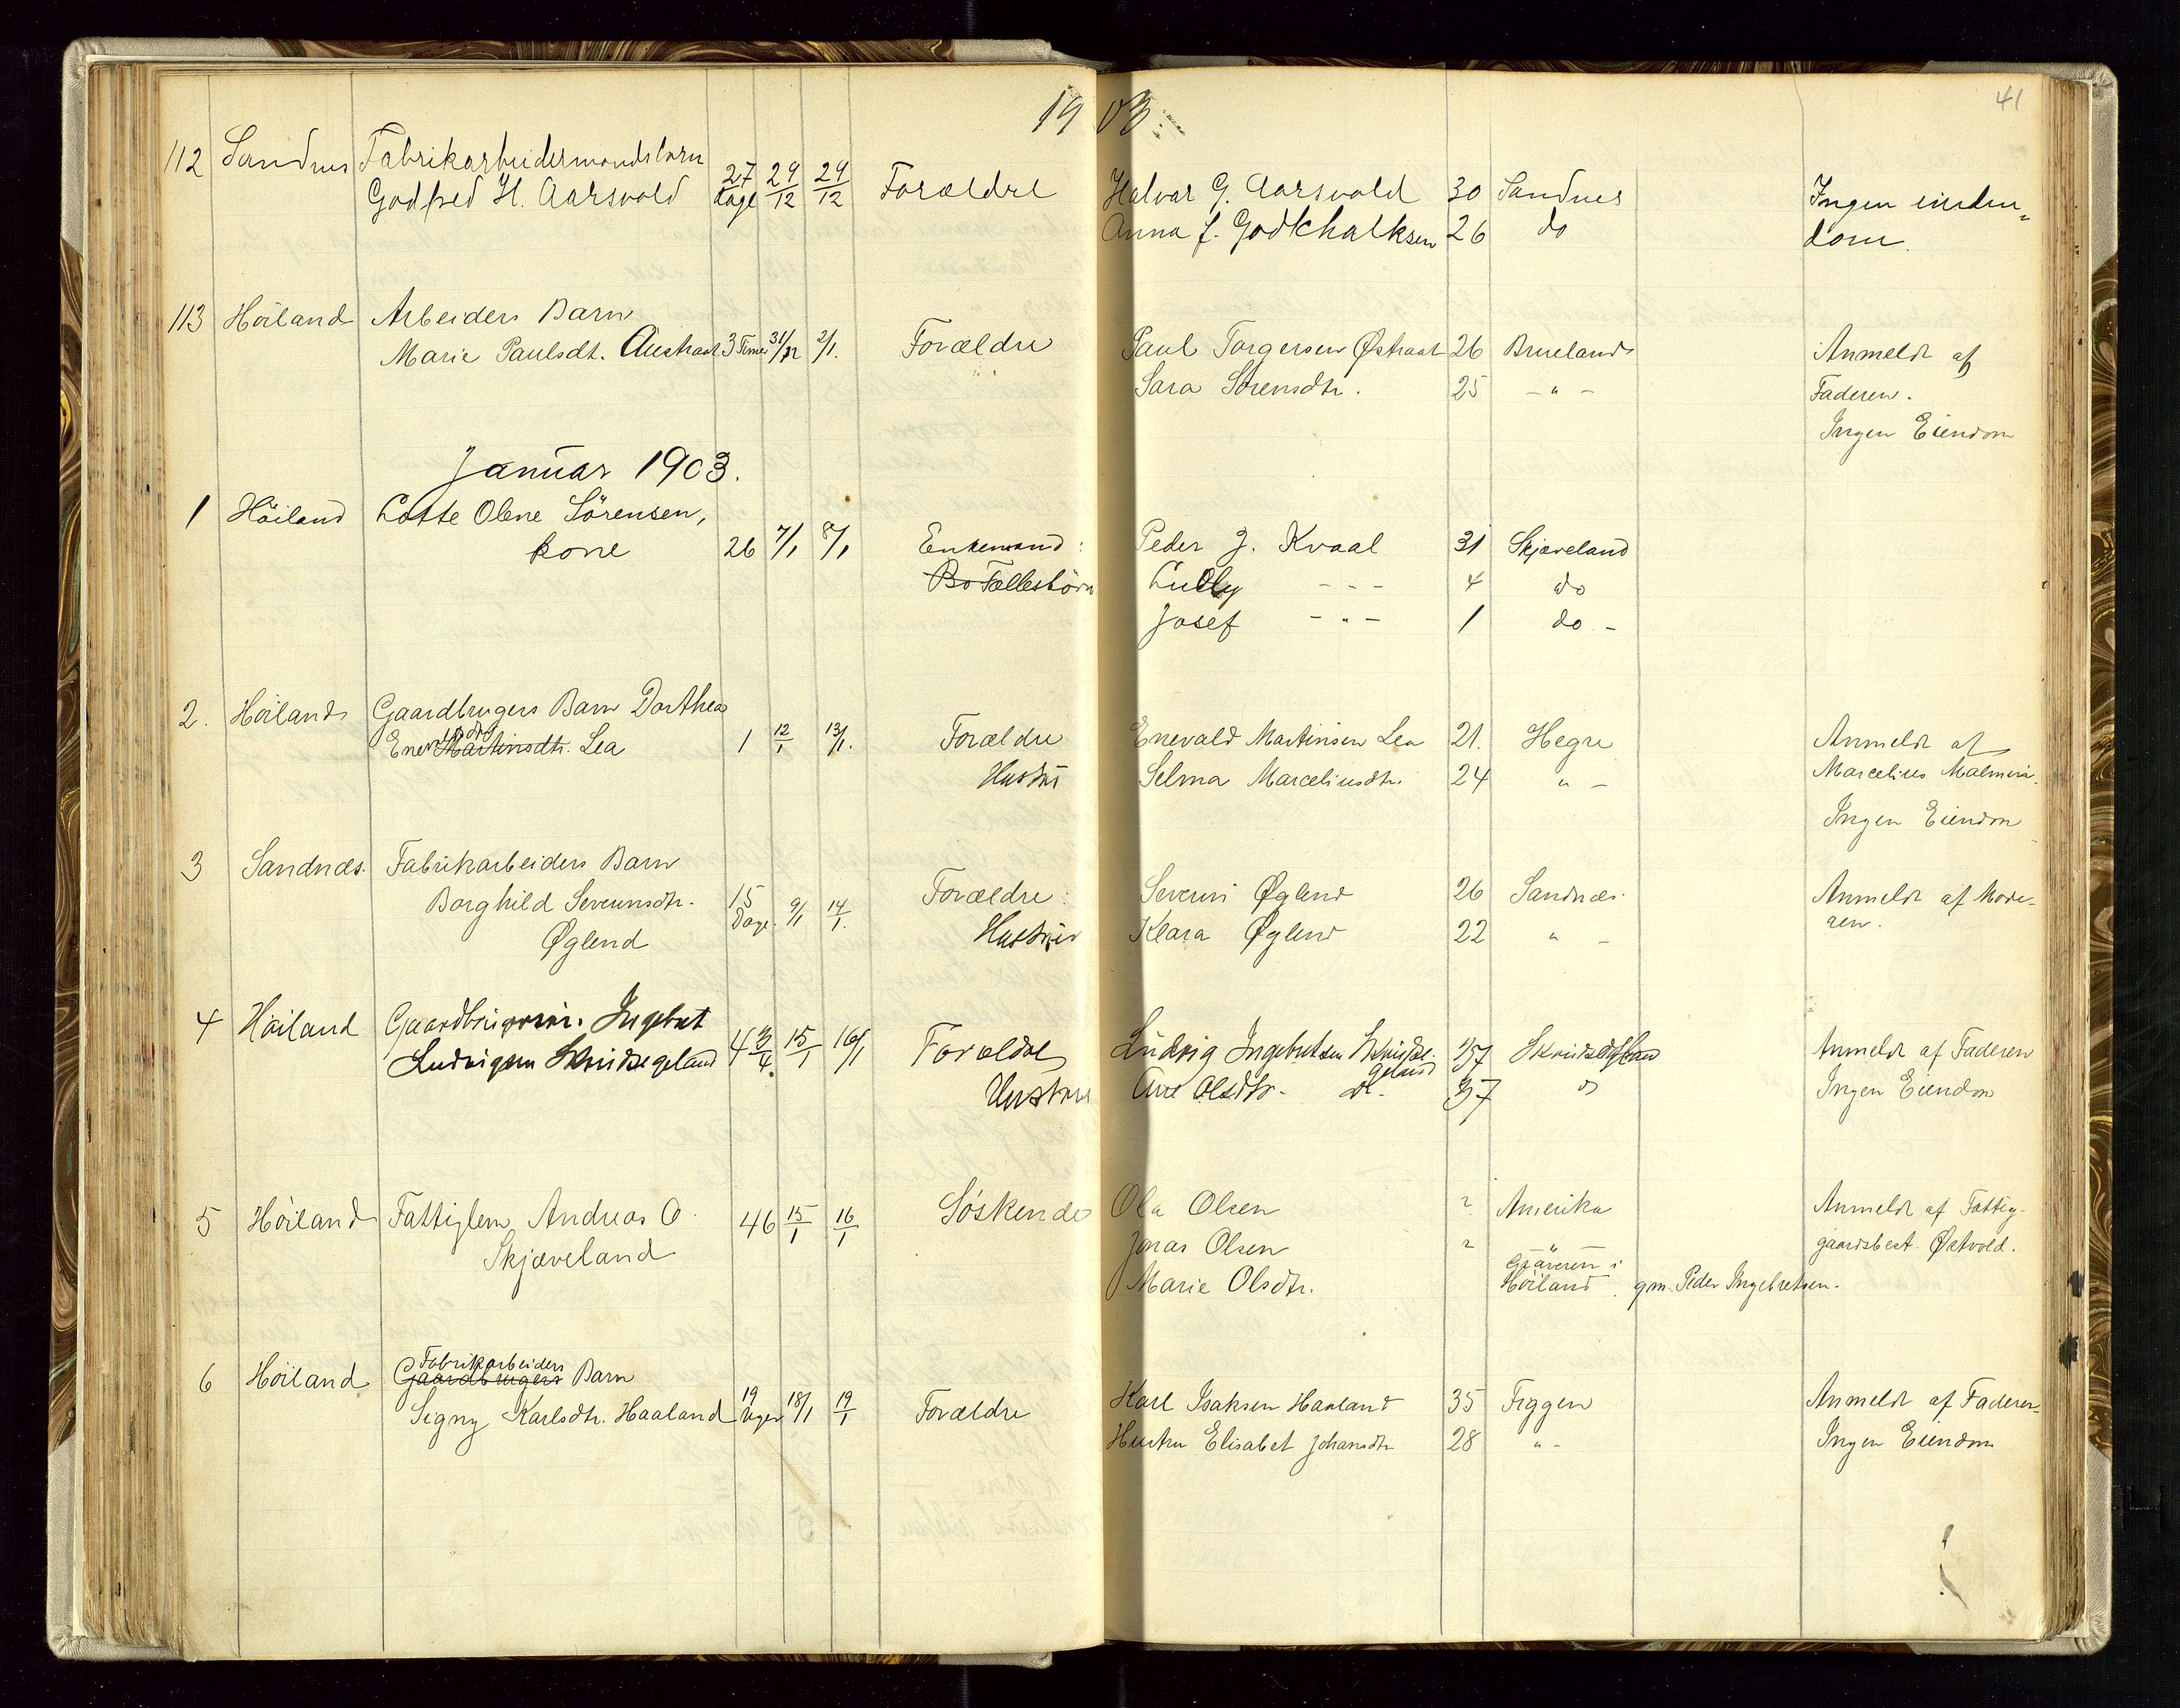 41
1903.
112 Sandnes Fabrikarbeidermandsbarn
Godfred H. Aarsvold 27 Dage 29/12 29/12 Forældre Halvar G. Aarsvold 30 Sandnes Ingen eien-
Anna J. Godtchalksen 26 do dom.
113 Höiland Arbeiders Barn
Marie Paulsdt. Austraat. 3 Timer 31/12 2/1. Forældre Paul Torgersen Østraat 26 Brueland Anmeldt af
Sara Sörensdtr. 25 - " - Faderen.
Ingen Eiendom
Januar 1903.
1 Höiland Lotte Olene Sörensen,
kone 26 7/1 8/1 Enkemand: Peder J. Kvaal 31 Skjæveland
Bo Fællesbörn Lully - - - 4 do
Josef - " - 1 do -
2. Höiland Gaardbrugers Barn Dorthea
Enev Martinsdtr. Lea 1 12/1 13/1. Forældre Enevald Martinsen Lea 21. Hegre Anmeldt af
Hustru Selma Marceliusdtr. 24 " - Marcelius
Ingen Eiendom
3 Sandnæs. Fabrikarbeiders Barn
Borghild Severinsdtr. 15 Dage. 9/1 14/1. Forældre: Severin Øglend 26 Sandnæs. Anmeldt af Mode-
Øglend Hustru Klara Øglend 22 " - ren.
4 Höiland Ingebret
Ludvigsen 4 3/4. 15/1 16/1 Forældre Ludvig Ingebretsen Anmeldt af Faderen
Hustru Ane Olsdtr. do. 37 Ingen Eiendom
5 Höiland Fattiglem, Andreas O. 46 15/1 16/1 Söskende Ola Olsen ? Amerika Anmeldt af Fattig-
Skjæveland Jonas Olsen ? gaardsbest. Østvold.
Marie Olsdtr. Gräveren i Höiland. gm. Peder Ingebretsen.
6 Höiland Fabrikarbeiders
Gaardbrugers Barn
Signy Karlsdtr. Haaland 19 Uger 18/1 19/1 Forældre Karl Isaksen Haaland 35 Figgen Anmeldt af Faderen
Hustru Elisabet Johansdtr 28 " - Ingen Eiendom